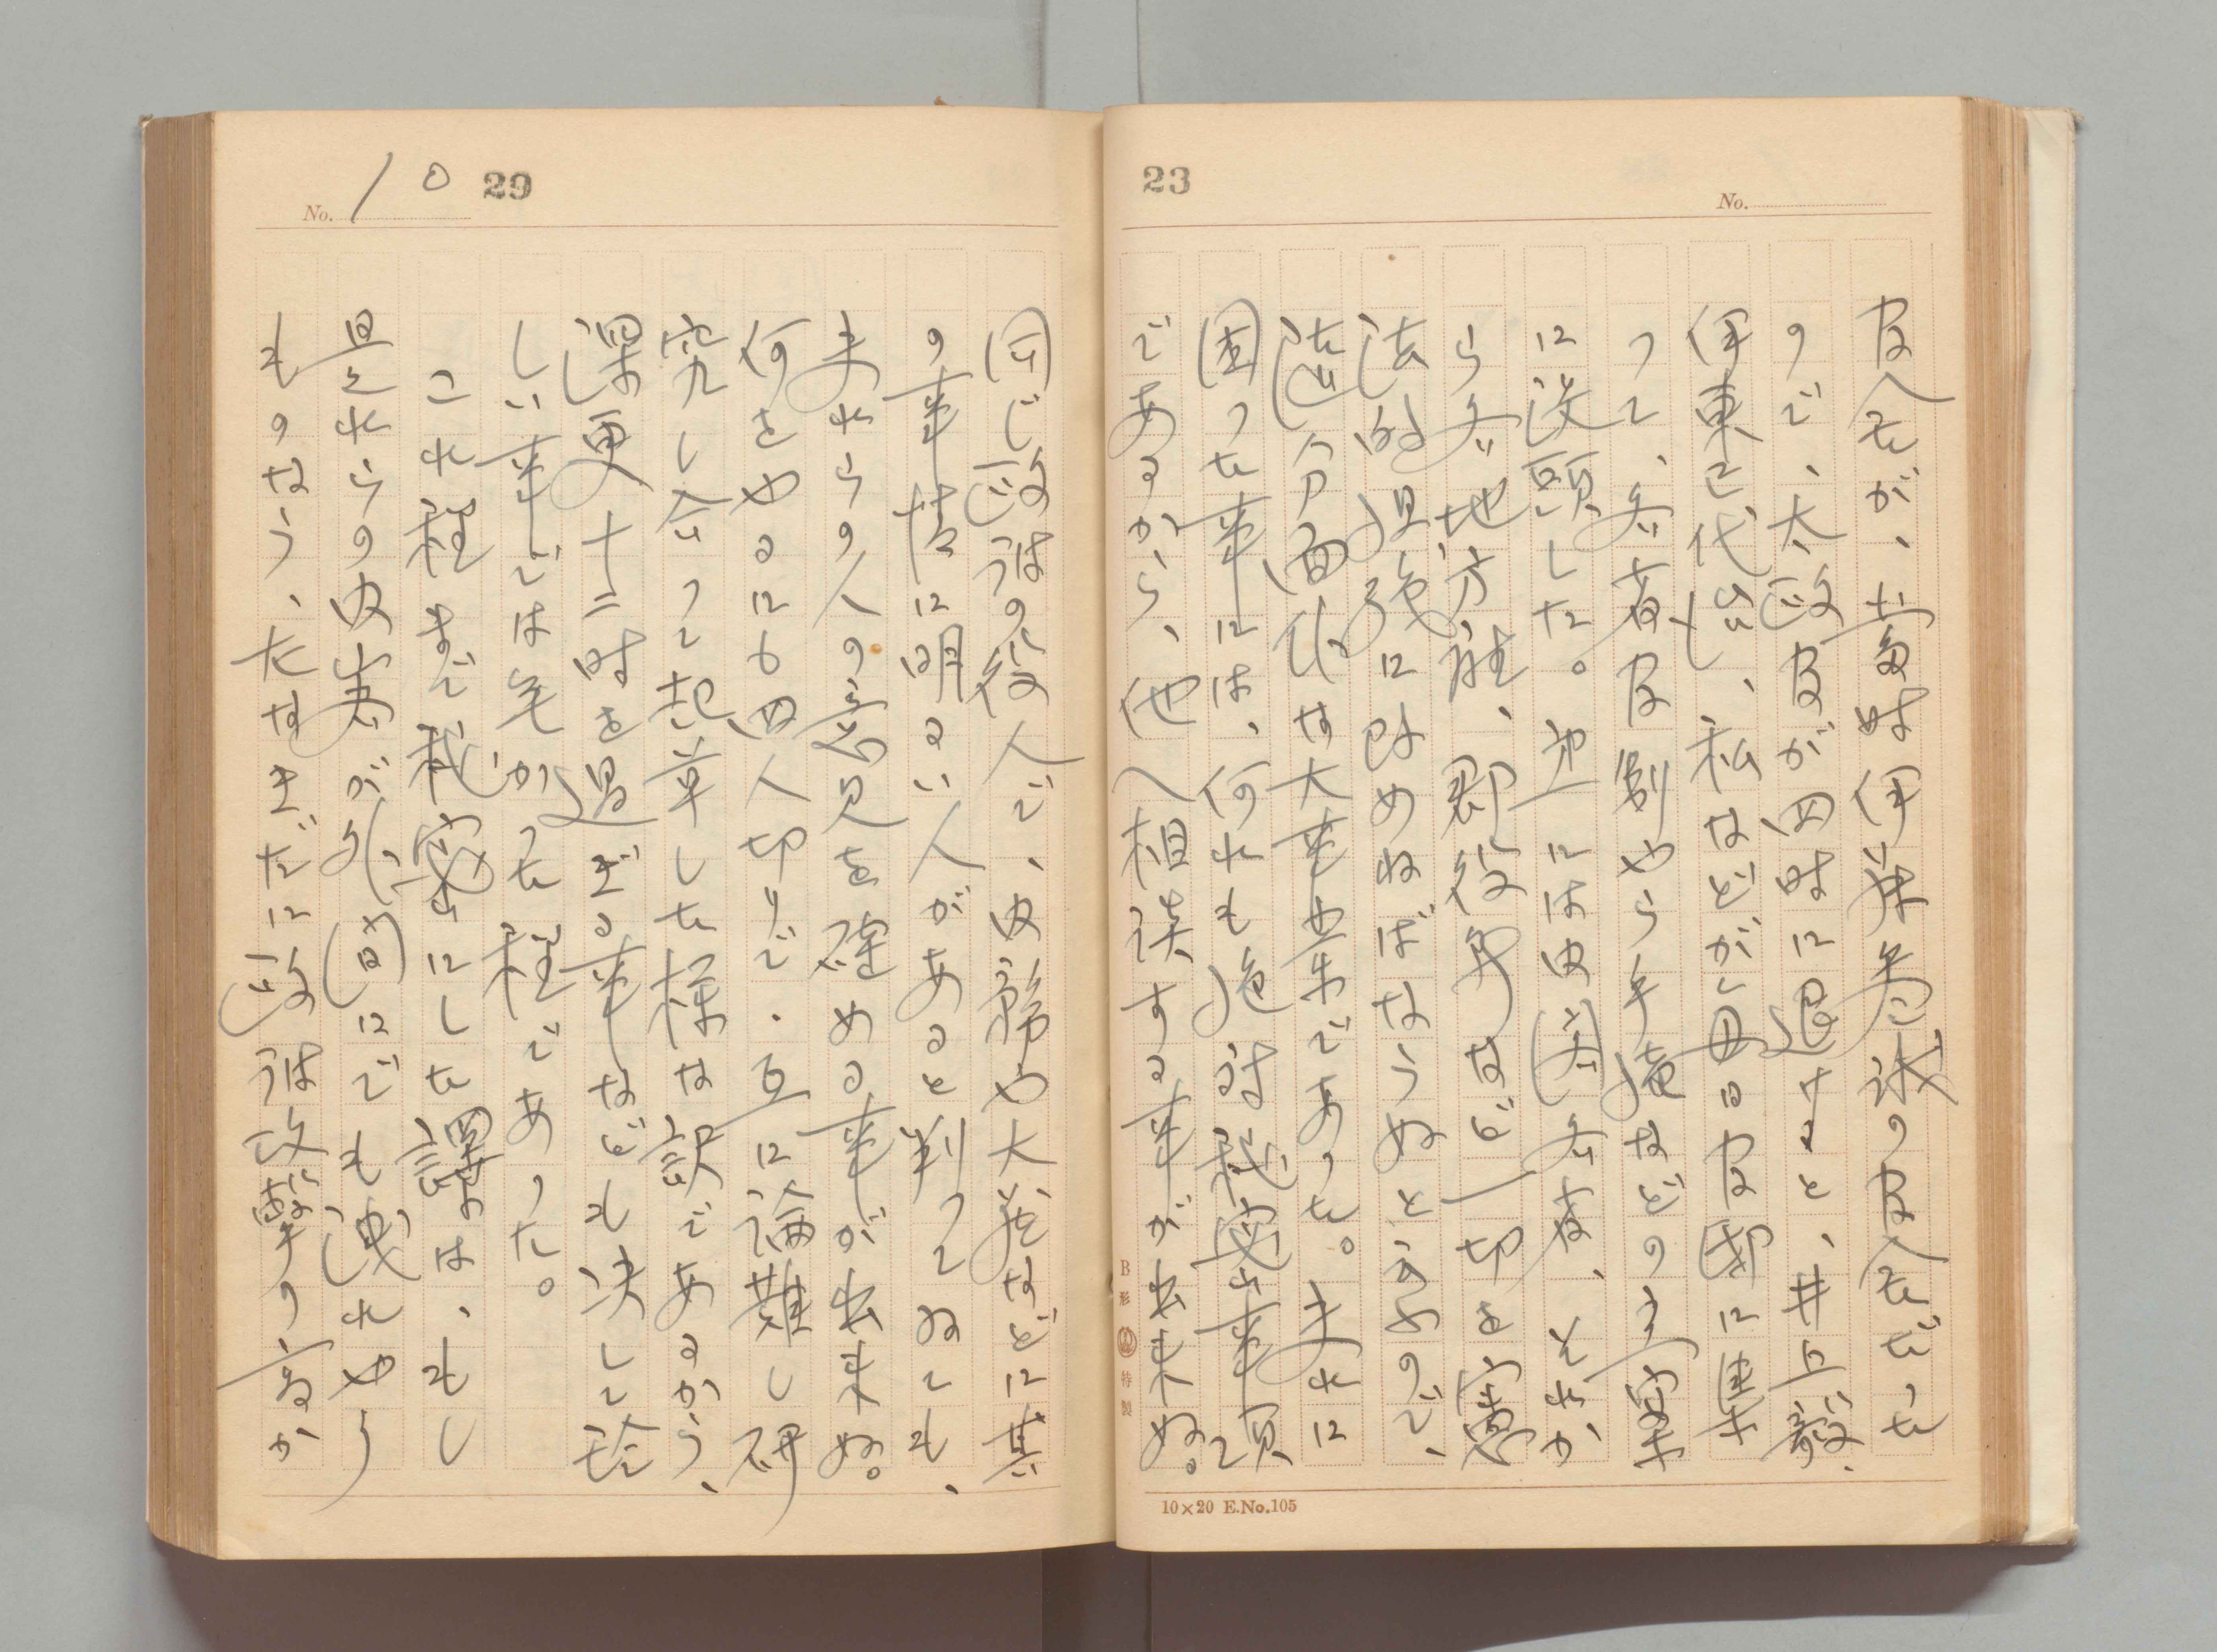 No.
23
が、当時伊藤参議の
ので、太政官が四時に退けると、井上毅、
伊東巳代治、私などが毎日官邸に集ま
つて、各省官制やら手続などの立案
に没頭した。中には内閣各省、それか
ら各地方庁、郡役所など一切を憲
法的組織に改めねばならぬと云ふので、
随分面倒な大事業であつた。夫れに
困つた事には、何れも絶対秘密事項
であるから、他へ相談する事が出来ぬ。
B形 特製
10×20 E.No.105
No. 10 29
同じ政府の役人で、内務や大蔵などに其
の事情に明るい人があると判つてゐても、
夫れらの人の意見を確める事が出来ぬ。
何をやるにも四人切りで、互に論難し研
究し合つて起草した様な訳であるから、
深更十二時を過ぎる事なども決して珍
しい事では無かつた程であつた。
これ程まで秘密にした譯は、もし
是れらの内案が外間にでも洩れやう
ものなら、左なきだに政府攻撃の高か